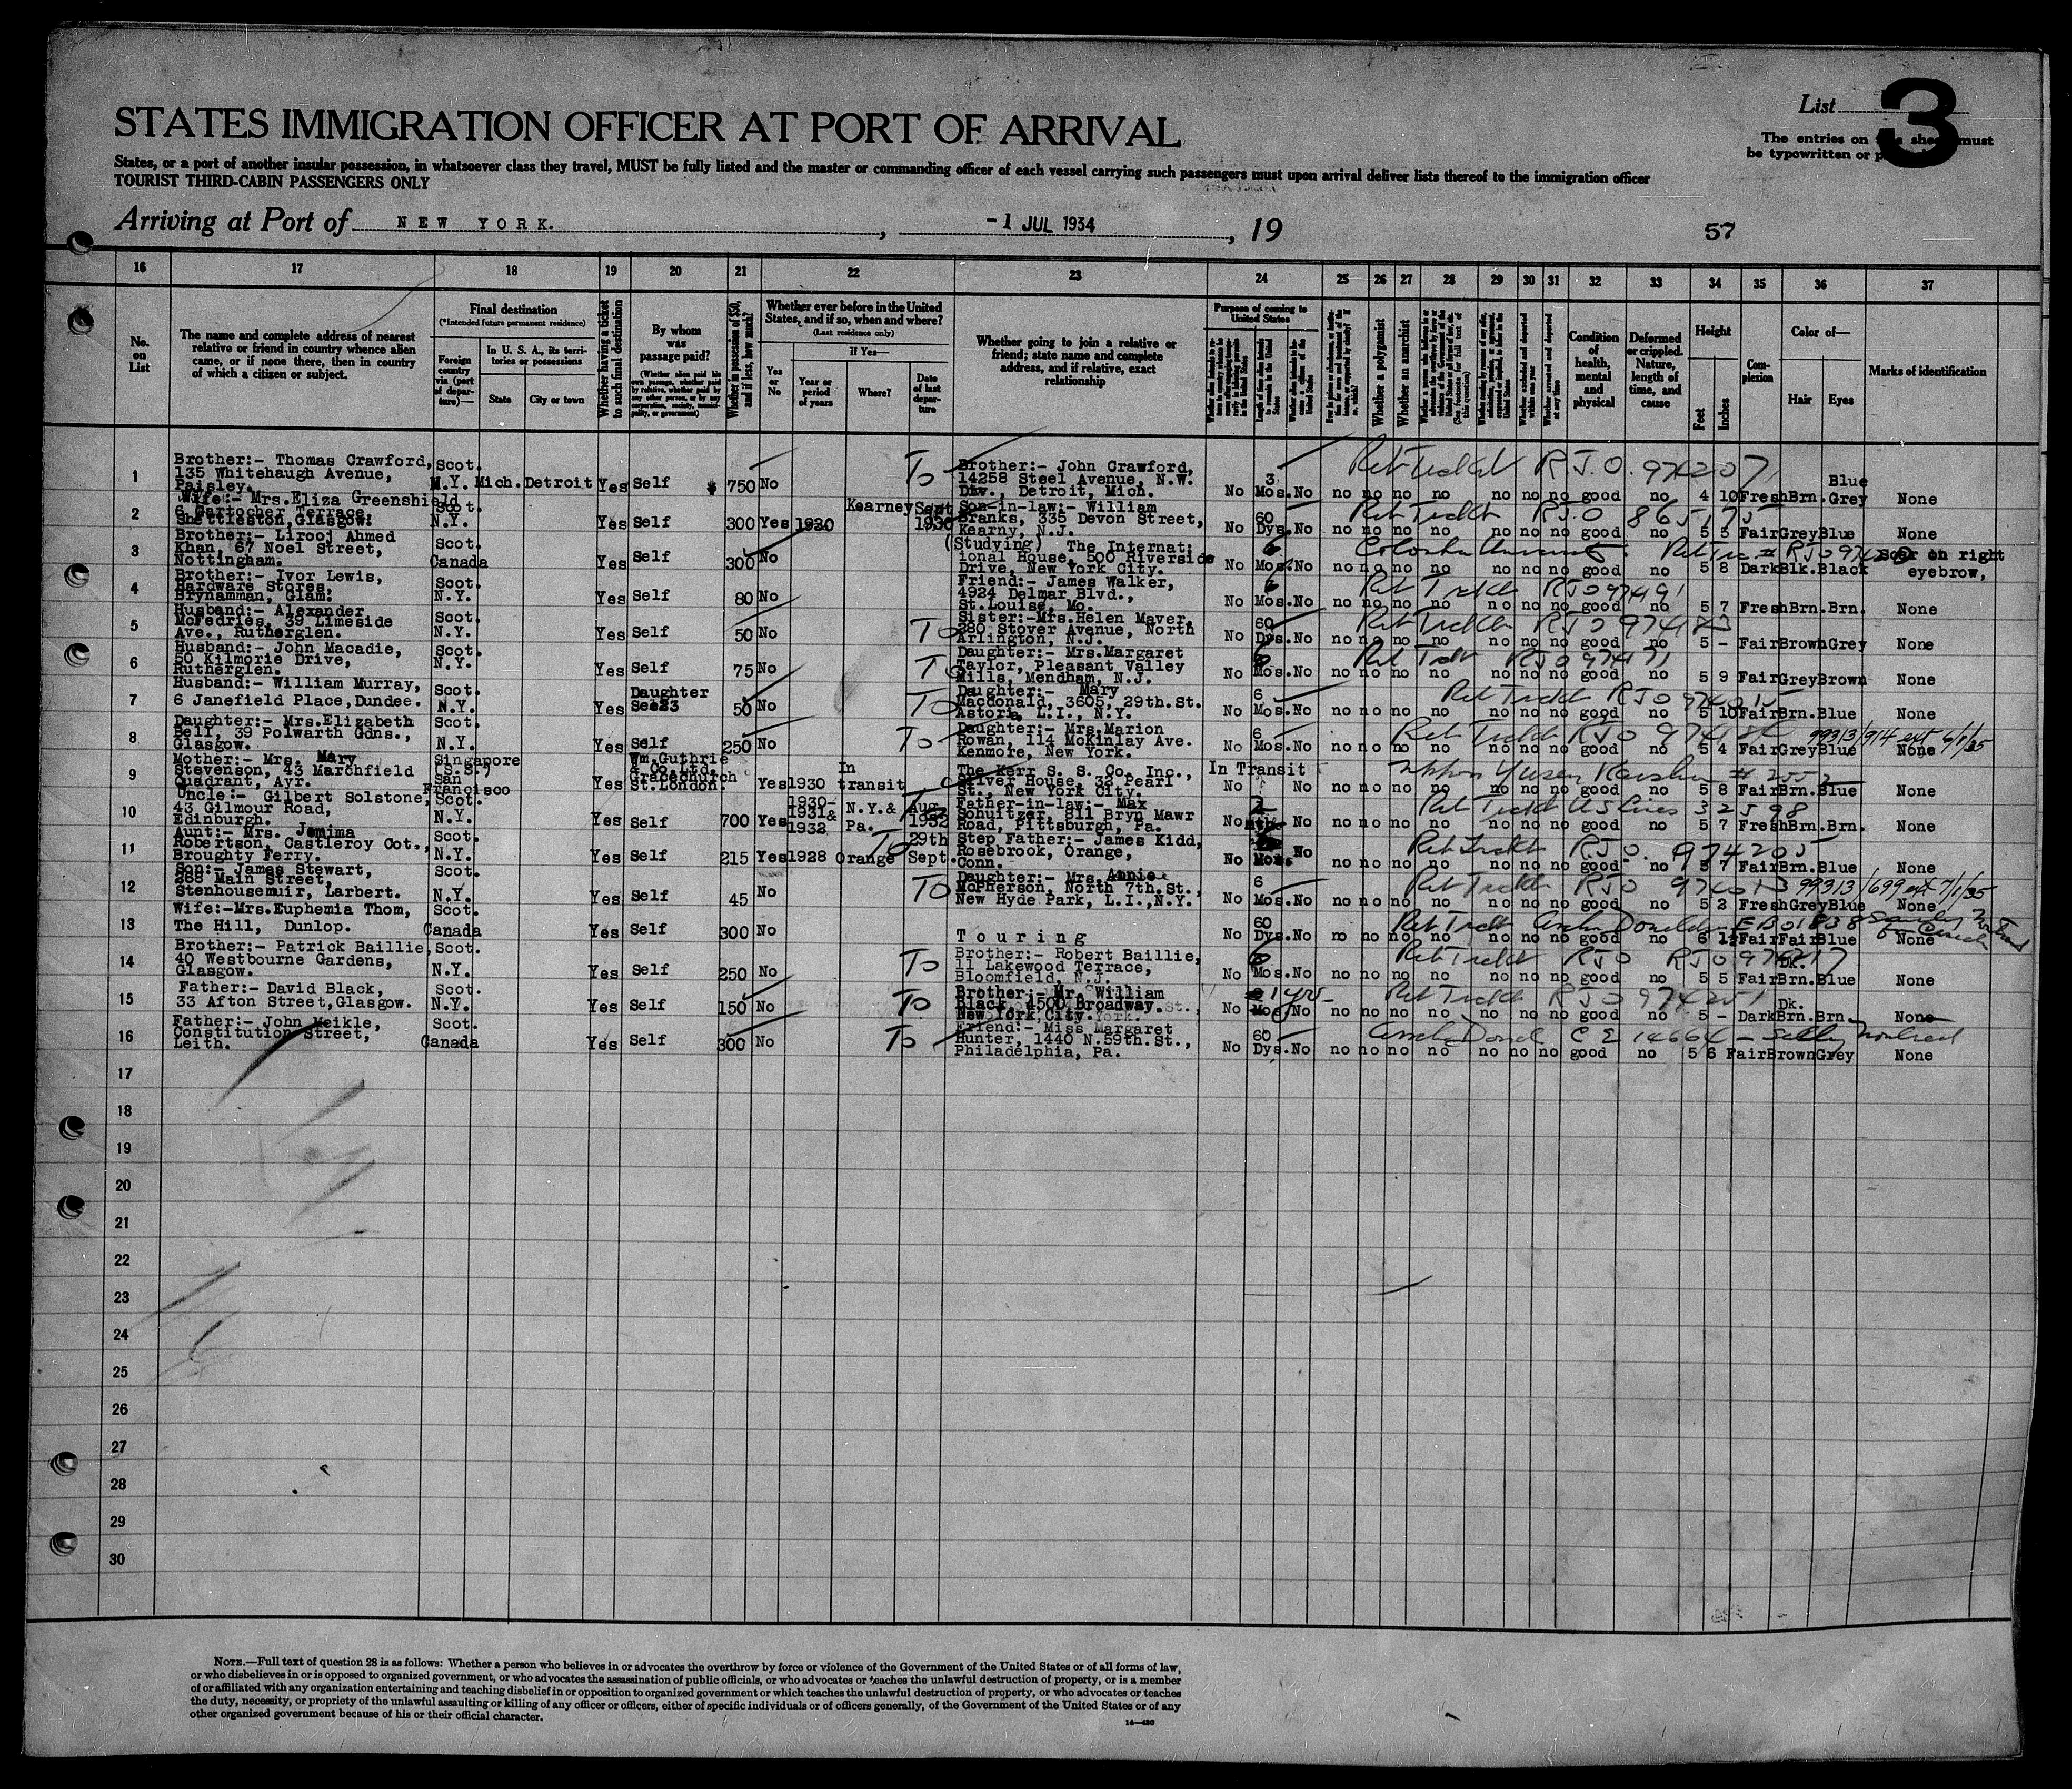 List 3
STATES IMMIGRATION OFFICER AT PORT OF ARRIVAL
The entries on sheet must
be typewritten or
States, or a port of another insular possession, in whatsoever class they travel, MUST be fully listed and the master or commanding officer of each vessel carrying such passengers must upon arrival deliver lists thereof to the immigration officer
TOURIST THIRD-CABIN PASSENGERS ONLY
Arriving at Port of NEW YORK. , -1 JUL 1934 , 19
57
16 17 18 19 20 21 22 23 24 25 26 27 28 29 30 31 32 33 34 35 36 37
No. on List
The name and complete address of nearest relative or friend in country whence alien came, or if none there, then in country of which a citizen or subject.
Final destination
(*Intended future permanent residence)
Foreign country via (port of departure)—
In U. S. A., its territories or possessions
State
City or town
Whether having a ticket to such final destination
By whom was passage paid?
(Whether alien paid his own passage, whether paid by relative, whether paid by any other person, or by any corporation, society, municipality, or government)
Whether in possession of $50, and if less, how much?
Whether ever before in the United States, and if so, when and where?
(Last residence only)
Yes or No
If Yes—
Year or period of years
Where?
Date of last departure
Whether going to join a relative or friend; state name and complete address, and if relative, exact relationship
Purpose of coming to United States
Whether a polygamist
Whether an anarchist
Condition of health, mental and physical
Deformed or crippled. Nature, length of time, and cause
Height
Feet
Inches
Complexion
Color of—
Hair
Eyes
Marks of identification
1 Brother:- Thomas Crawford, 135 Whitehaugh Avenue, Paisley. Scot. N.Y. Mich. Detroit Yes Self $ 750 No To Brother:- John Crawford, 14258 Steel Avenue, N.W. Div., Detroit, Mich. No 3 Mos. No no no no no no no no good no 4 10 Fresh Brn. Blue Grey None
Ret Ticket R.J.O. 974207
2 Wife:- Mrs.Eliza Greenshield 6 Gartocher Terrace, Shettleston, Glasgow. Scot. N.Y. Yes Self 300 Yes 1930 Kearney Sept 1930 Son-in-law:- William Branks, 335 Devon Street, Kearny, N.J. No 60 Dys. No no no no no no no no good no 5 5 Fair Grey Blue None
Ret Ticket RJO 865175
3 Brother:- Lirooj Ahmed Khan, 67 Noel Street, Nottingham. Scot. Canada Yes Self 300 No (Studying) The International House, 500 Riverside Drive, New York City. No 6 Mos. No no no no no no no no good no 5 8 Dark Blk. Black Scar on right eyebrow,
4 Brother:- Ivor Lewis, Hardware Stores, Brynamman, Glam. Scot. N.Y. Yes Self 80 No Friend:- James Walker, 4924 Delmar Blvd., St.Louise, Mo. No 6 Mos. No no no no no no no no good no 5 7 Fresh Brn. Brn. None
Ret Ticket RJO 97491
5 Husband:- Alexander McFedries, 39 Limeside Ave., Rutherglen. Scot. N.Y. Yes Self 50 No To Sister:-Mrs.Helen Maver, 280 Stover Avenue, North Arlington, N.J. No 60 Dys. No no no no no no no no good no 5 - Fair Brown Grey None
6 Husband:- John Macadie, 50 Kilmorie Drive, Rutherglen. Scot. N.Y. Yes Self 75 No To Daughter:- Mrs.Margaret Taylor, Pleasant Valley Mills, Mendham, N.J. No 6 Mos. No no no no no no no no good no 5 9 Fair Grey Brown None
Ret Ticket RJO 97471
7 Husband:- William Murray, 6 Janefield Place, Dundee. Scot. N.Y. Yes Daughter 50 No To Daughter:- Mary Macdonald, 3605, 29th.St. Astoria, L.I., N.Y. No 6 Mos. No no no no no no no no good no 5 10 Fair Brn. Blue None
8 Daughter:- Mrs.Elizabeth Bell, 39 Polwarth Gdns., Glasgow. Scot. N.Y. Yes Self 250 No To Daughter:- Mrs.Marion Rowan, 114 McKinlay Ave. Kenmore, New York. No 6 Mos. No no no no no no no no good no 5 4 Fair Grey Blue None
99313/914 ext 6/1/35
9 Mother:- Mrs. Mary Stevenson, 43 Marchfield Quadrant, Ayr. Singapore (S.S.) San Francisco Yes Wm.Guthrie & Co.Ltd. Gracechurch St.London. Yes 1930 In transit The Kerr S. S. Co. Inc., Silver House, 32 Pearl St., New York City. In Transit No No no no no no no no no good no 5 8 Fair Brn. Blue None
Nippon Yusen Kaisha # 2552
10 Uncle:- Gilbert Solstone, 43 Gilmour Road, Edinburgh. Scot. N.Y. Yes Self 700 Yes 1930-1931 & 1932 N.Y.& Pa. Aug 1932 Father-in-law:- Max Schuitzer, 811 Bryn Mawr Road, Pittsburgh, Pa. No No no no no no no no no good no 5 7 Fresh Brn. Brn. None
Ret Ticket U S Lines 32598
11 Aunt:- Mrs. Jemima Robertson, Castleroy Cot., Broughty Ferry. Scot. N.Y. Yes Self 215 Yes 1928 Orange 29th Sept. Step Father:- James Kidd, Rosebrook, Orange, Conn. No Mos. No no no no no no no no good no 5 7 Fair Brn. Blue None
Ret Ticket RJO. 974205
12 Son:- James Stewart, 268 Main Street, Stenhousemuir, Larbert. Scot. N.Y. Yes Self 45 No To Daughter:- Mrs. Annie McPherson, North 7th.St., New Hyde Park, L.I., N.Y. No 6 Mos. No no no no no no no no good no 5 2 Fresh Grey Blue None
Ret Ticket RJO 974013 99313/699 ext 7/1/35
13 Wife:-Mrs.Euphemia Thom, The Hill, Dunlop. Scot. Canada Yes Self 300 No Touring No 60 Dys. No no no no no no no no good no 6 1½ Fair Fair Blue None
Ret Tickt Anchor Donaldson EB01838
14 Brother:- Patrick Baillie, 40 Westbourne Gardens, Glasgow. Scot. N.Y. Yes Self 250 No To Brother:- Robert Baillie, 11 Lakewood Terrace, Bloomfield, N.J. No 6 Mos. No no no no no no no no good no 5 5 Fair Brn. Blue None
15 Father:- David Black, 33 Afton Street, Glasgow. Scot. N.Y. Yes Self 150 No To Brother:- Mr. William Black, 4500 Broadway. New York City. No 1 yr No no no no no no no no good no 5 - Dark Dk. Brn. Brn. None
Ret Ticket RJO 974251
16 Father:- John Meikle, Constitution Street, Leith. Scot. Canada Yes Self 300 No To Friend:- Miss Margaret Hunter, 1440 N.59th.St., Philadelphia, Pa. No 60 Dys. No no no no no no no no good no 5 6 Fair Brown Grey None
17
18
19
20
21
22
23
24
25
26
27
28
29
30
NOTE.—Full text of question 28 is as follows: Whether a person who believes in or advocates the overthrow by force or violence of the Government of the United States or of all forms of law,
or who disbelieves in or is opposed to organized government, or who advocates the assassination of public officials, or who advocates or teaches the unlawful destruction of property, or is a member
of or affiliated with any organization entertaining and teaching disbelief in or opposition to organized government or which teaches the unlawful destruction of property, or who advocates or teaches
the duty, necessity, or propriety of the unlawful assaulting or killing of any officer or officers, either of specific individuals or of officers generally, of the Government of the United States or of any
other organized government because of his or their official character.
14—480